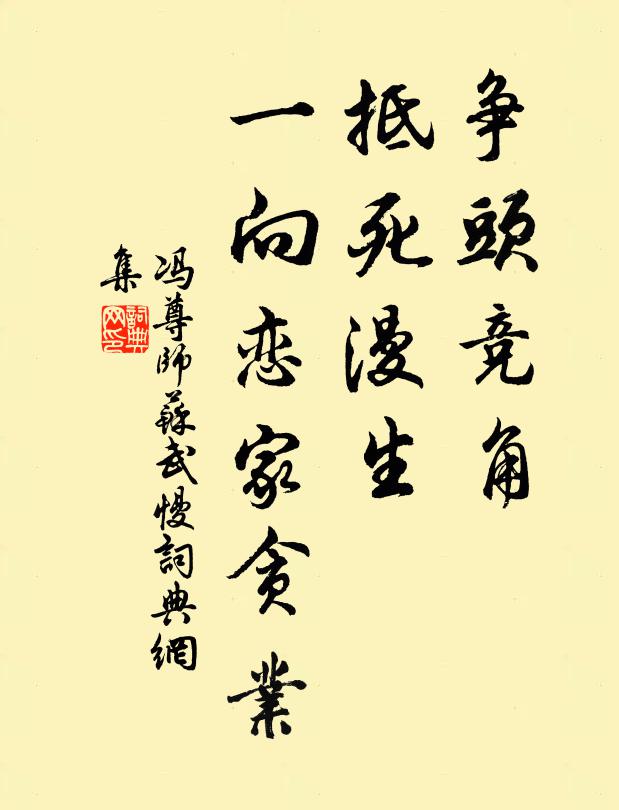 争頭竞角
抵死漫生
一向恋家贪業
冯尊師蘇武慢詞典網
集
詞典网印